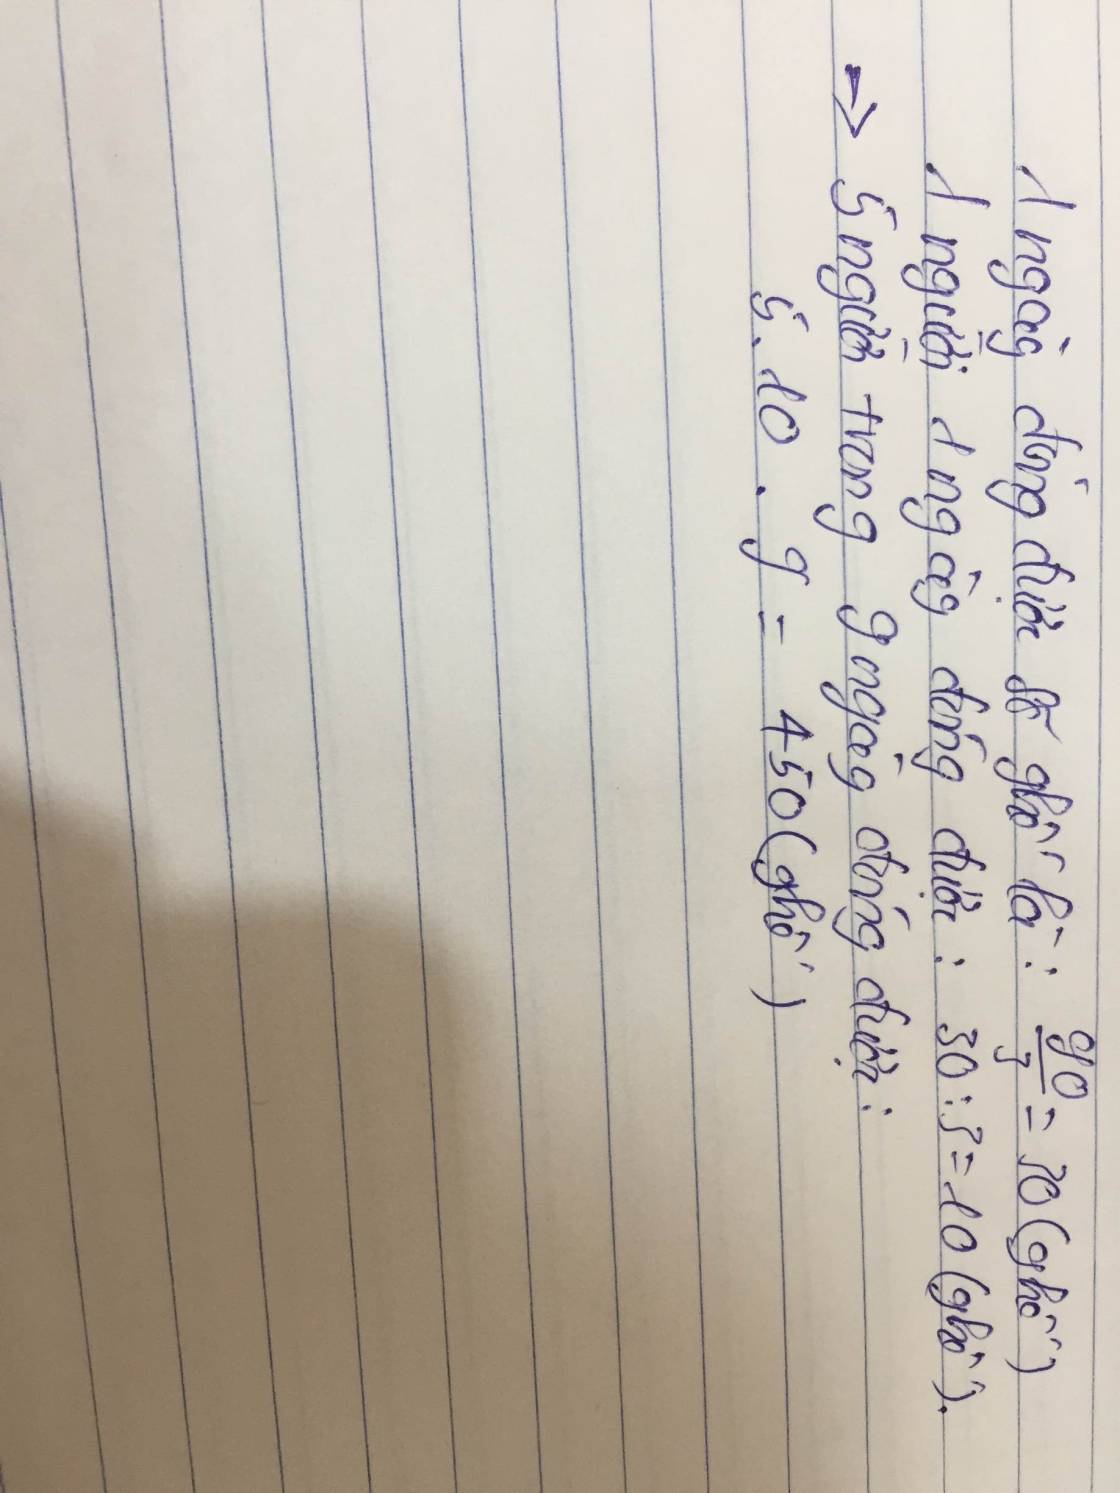 1 ngày đóng được số ghế là: 90/3 = 30 (ghế)
1 người 1 ngày đóng được: 30:3=10 (ghế).
→ 5 người trong 9 ngày đóng được:
5.10.9 = 450 (ghế)